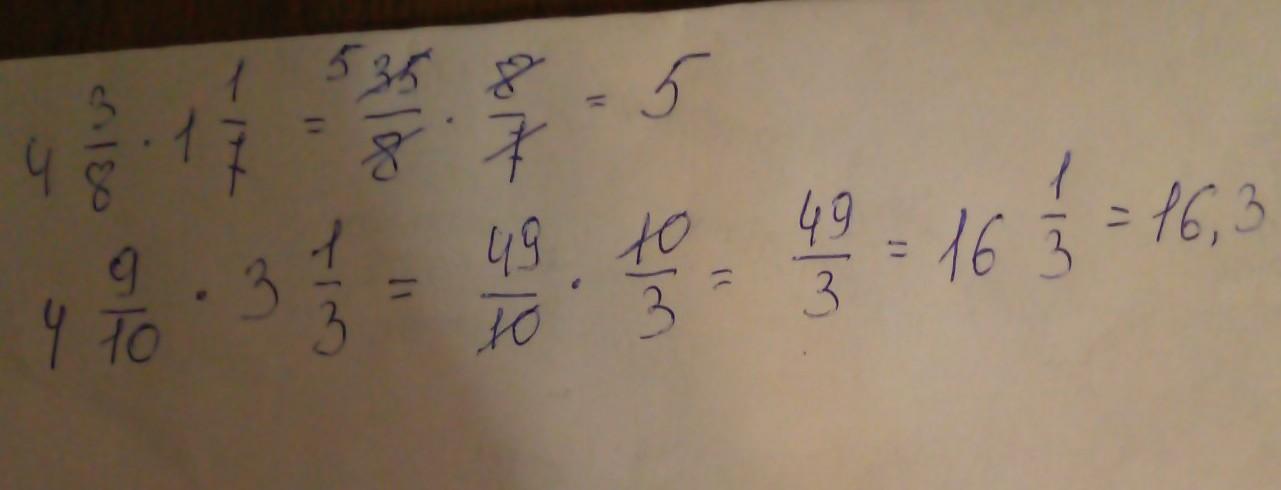 4 3/8 · 1 1/7 = 5 35/8 · 8/7 = 5
4 9/10 · 3 1/3 = 49/10 · 10/3 = 49/3 = 16 1/3 = 16,3